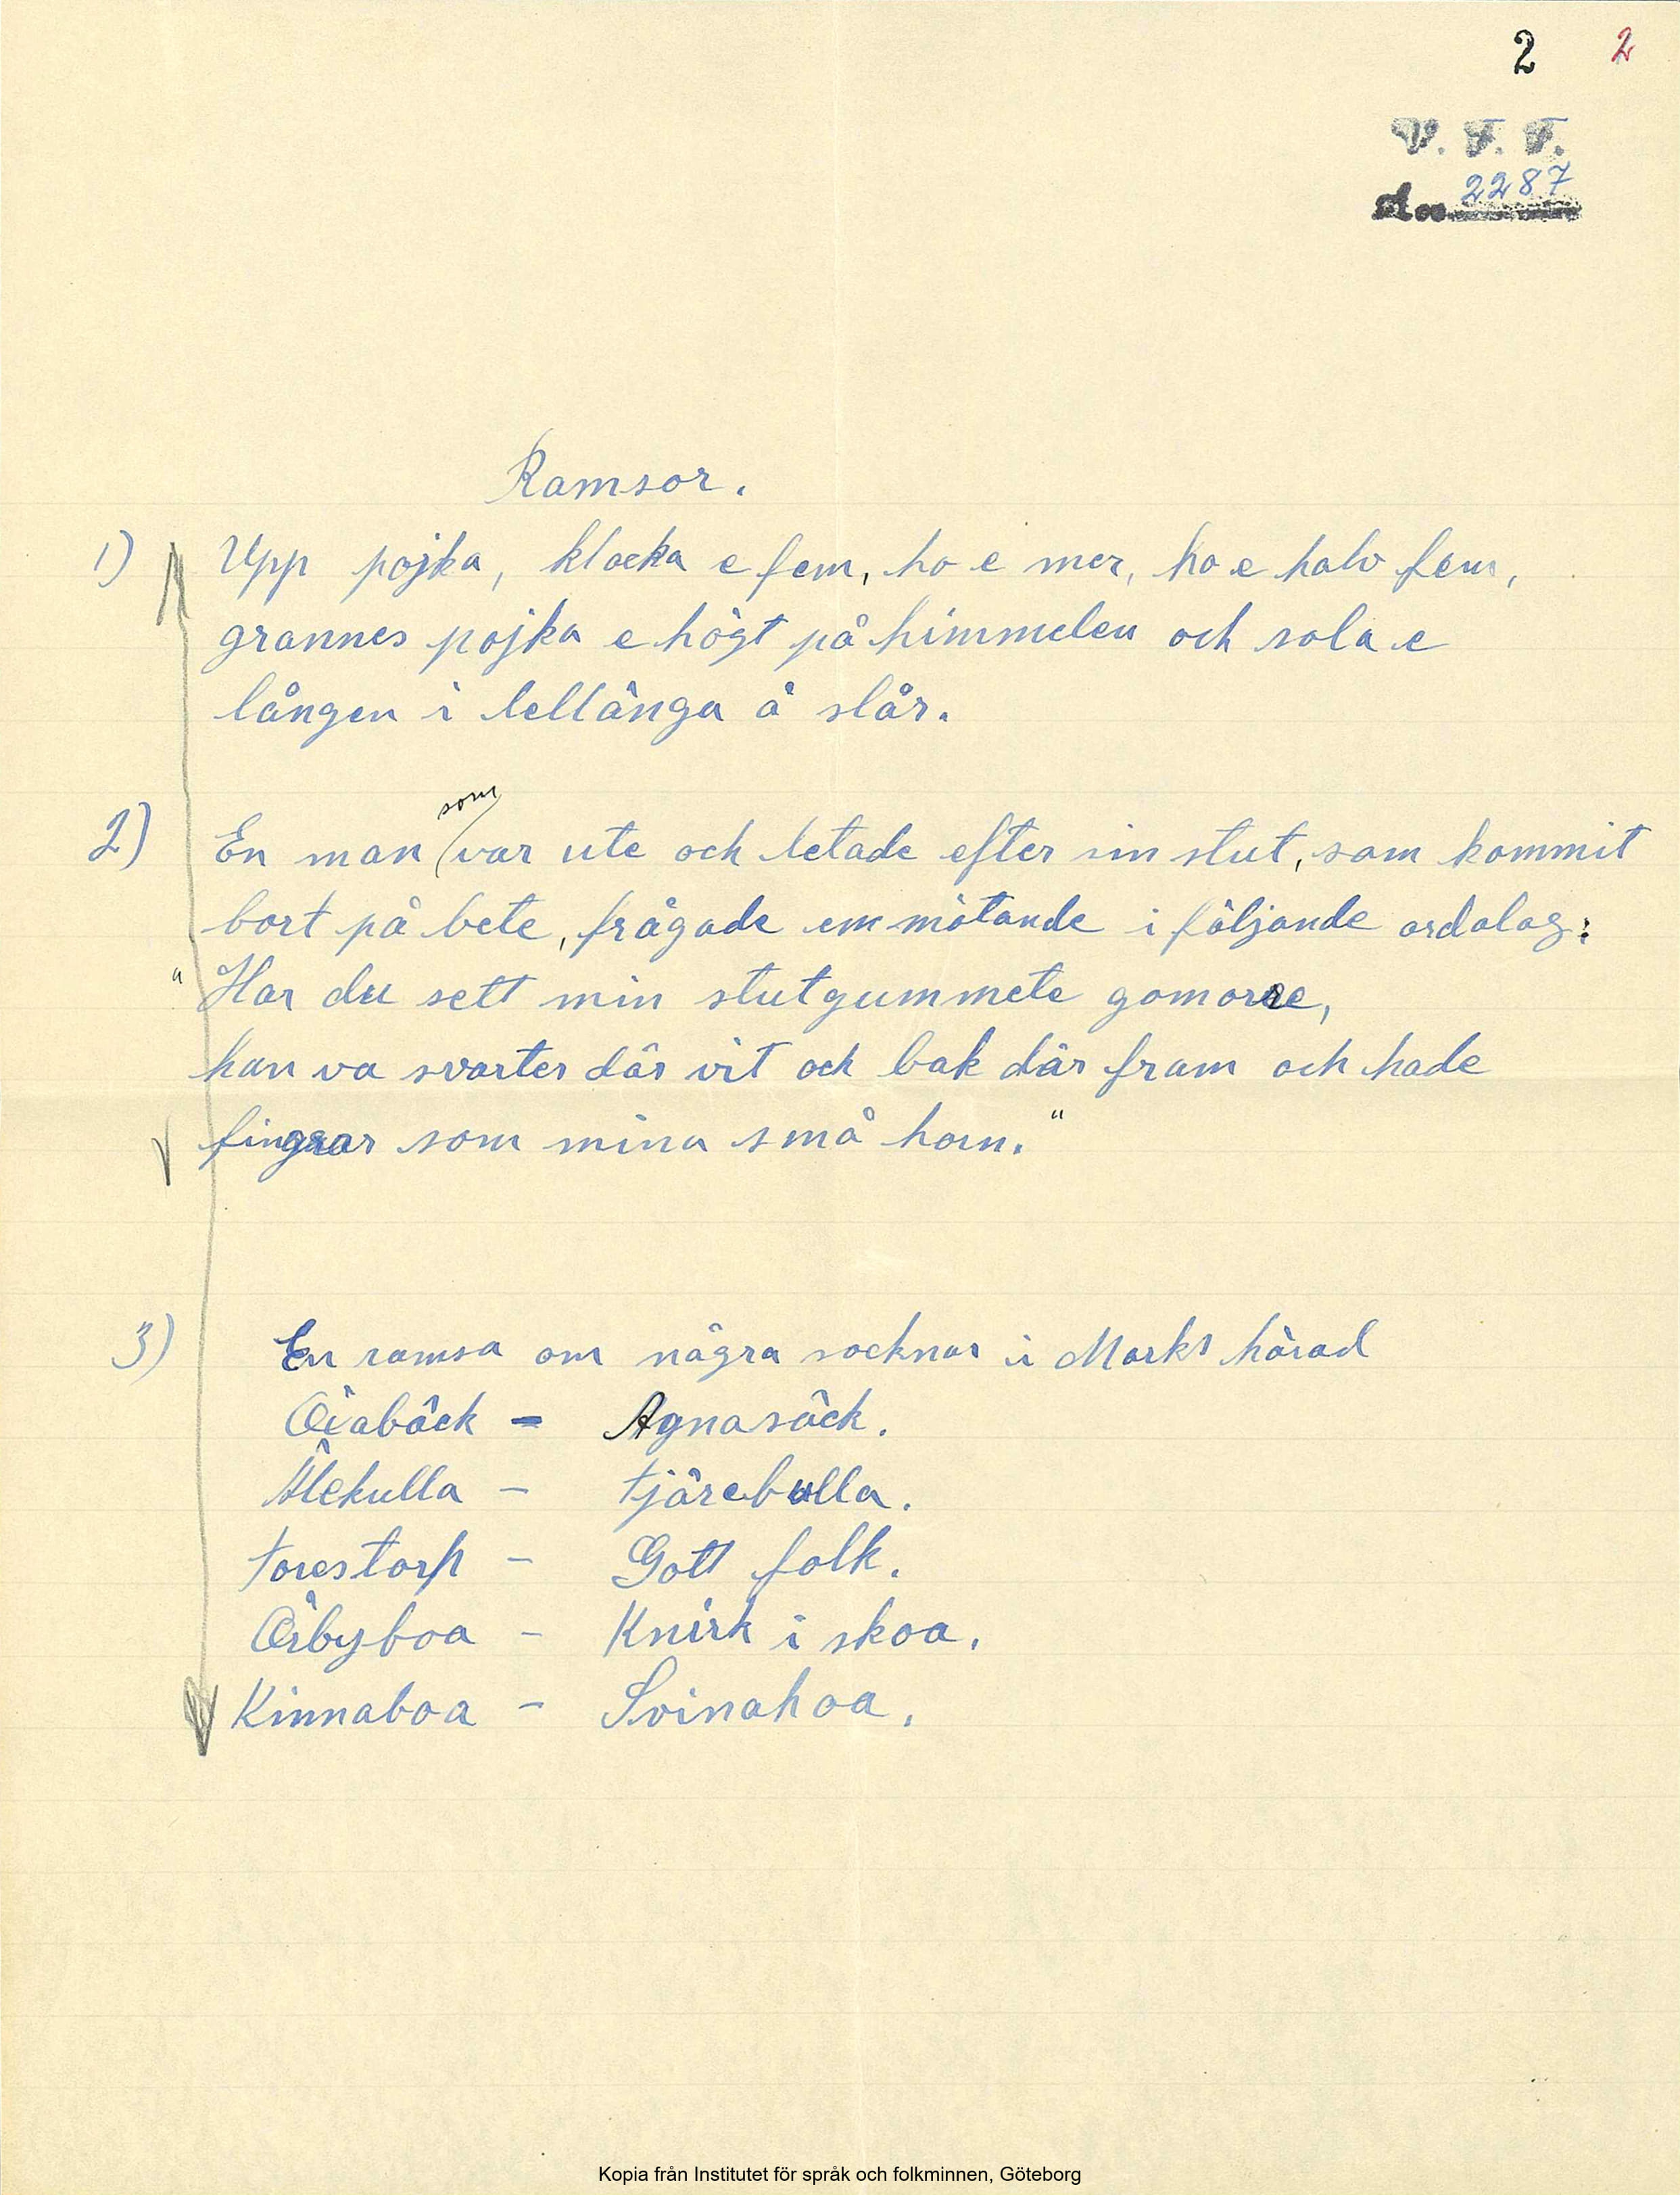 2 2
V. F. F.
2287
Ramsor.
1) Upp pojka, klocka e fem, ho e mer, ho e halv fem,
grannes pojka e högt på himmelen och sola e
lången i lellänga å slår.
2) En man som var ute och letade efter sin stut, som kommit
bort på bete, frågade en mötande i följande ordalag:
"Har du sett min stutgummete gomorre,
han va svarter där vit och bak där fram och hade
fingrar som mina små horn."
3) En ramsa om några socknar i Marks härad
Öxabäck - Agnasäck.
Älekulla - tjärebulla.
Torestorp - Gott folk.
Örbyboa - Knirk i skoa.
Kinnaboa - Svinahoa.
Kopia från Institutet för språk och folkminnen, Göteborg